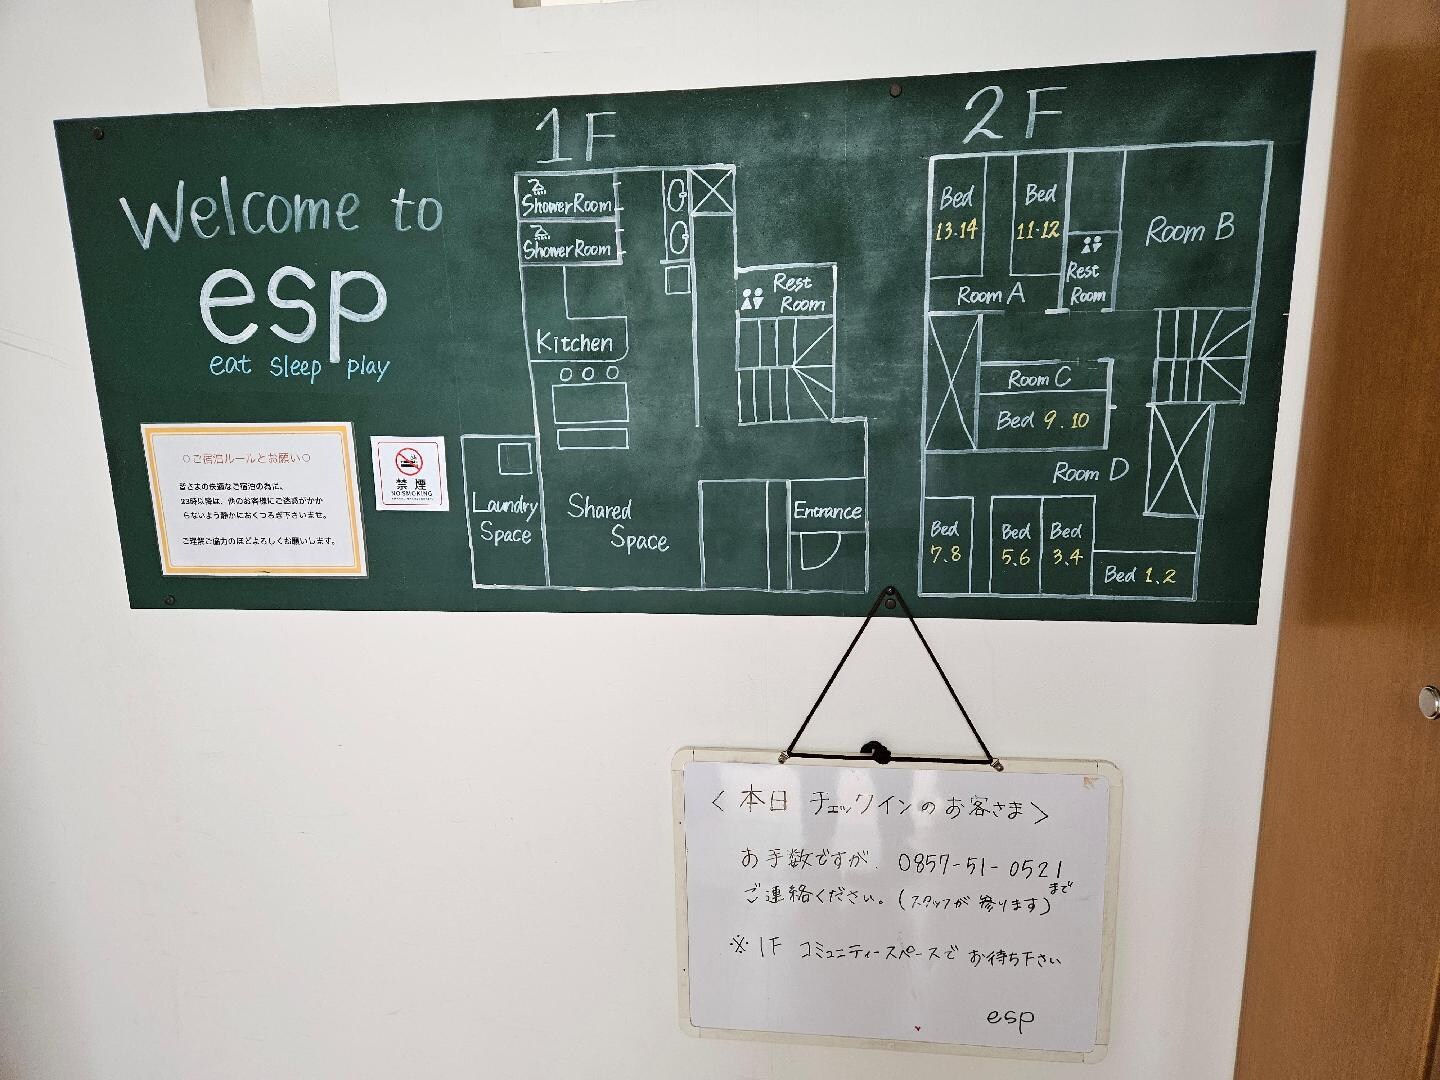 Welcome to
esp
eat sleep play
○ご宿泊ルールとお願い○
皆さまの快適なご宿泊の為に、
23時以降は、他のお客様にご迷惑がかか
らないよう静かにおくつろぎ下さいませ。
ご理解ご協力のほどよろしくお願いします。
禁煙
NO SMOKING
1F
Shower Room
Shower Room
Rest
Room
Kitchen
Laundry
Space
Shared
Space
Entrance
2F
Bed
13.14
Bed
11.12
Room B
Rest
Room
Room A
Room C
Bed 9.10
Room D
Bed
7.8
Bed
5.6
Bed
3.4
Bed 1.2
＜本日 チェックインのお客さま＞
お手数ですが、0857-51-0521
まで
ご連絡ください。(スタッフが参ります)
※1F コミュニティースペースでお待ち下さい
esp